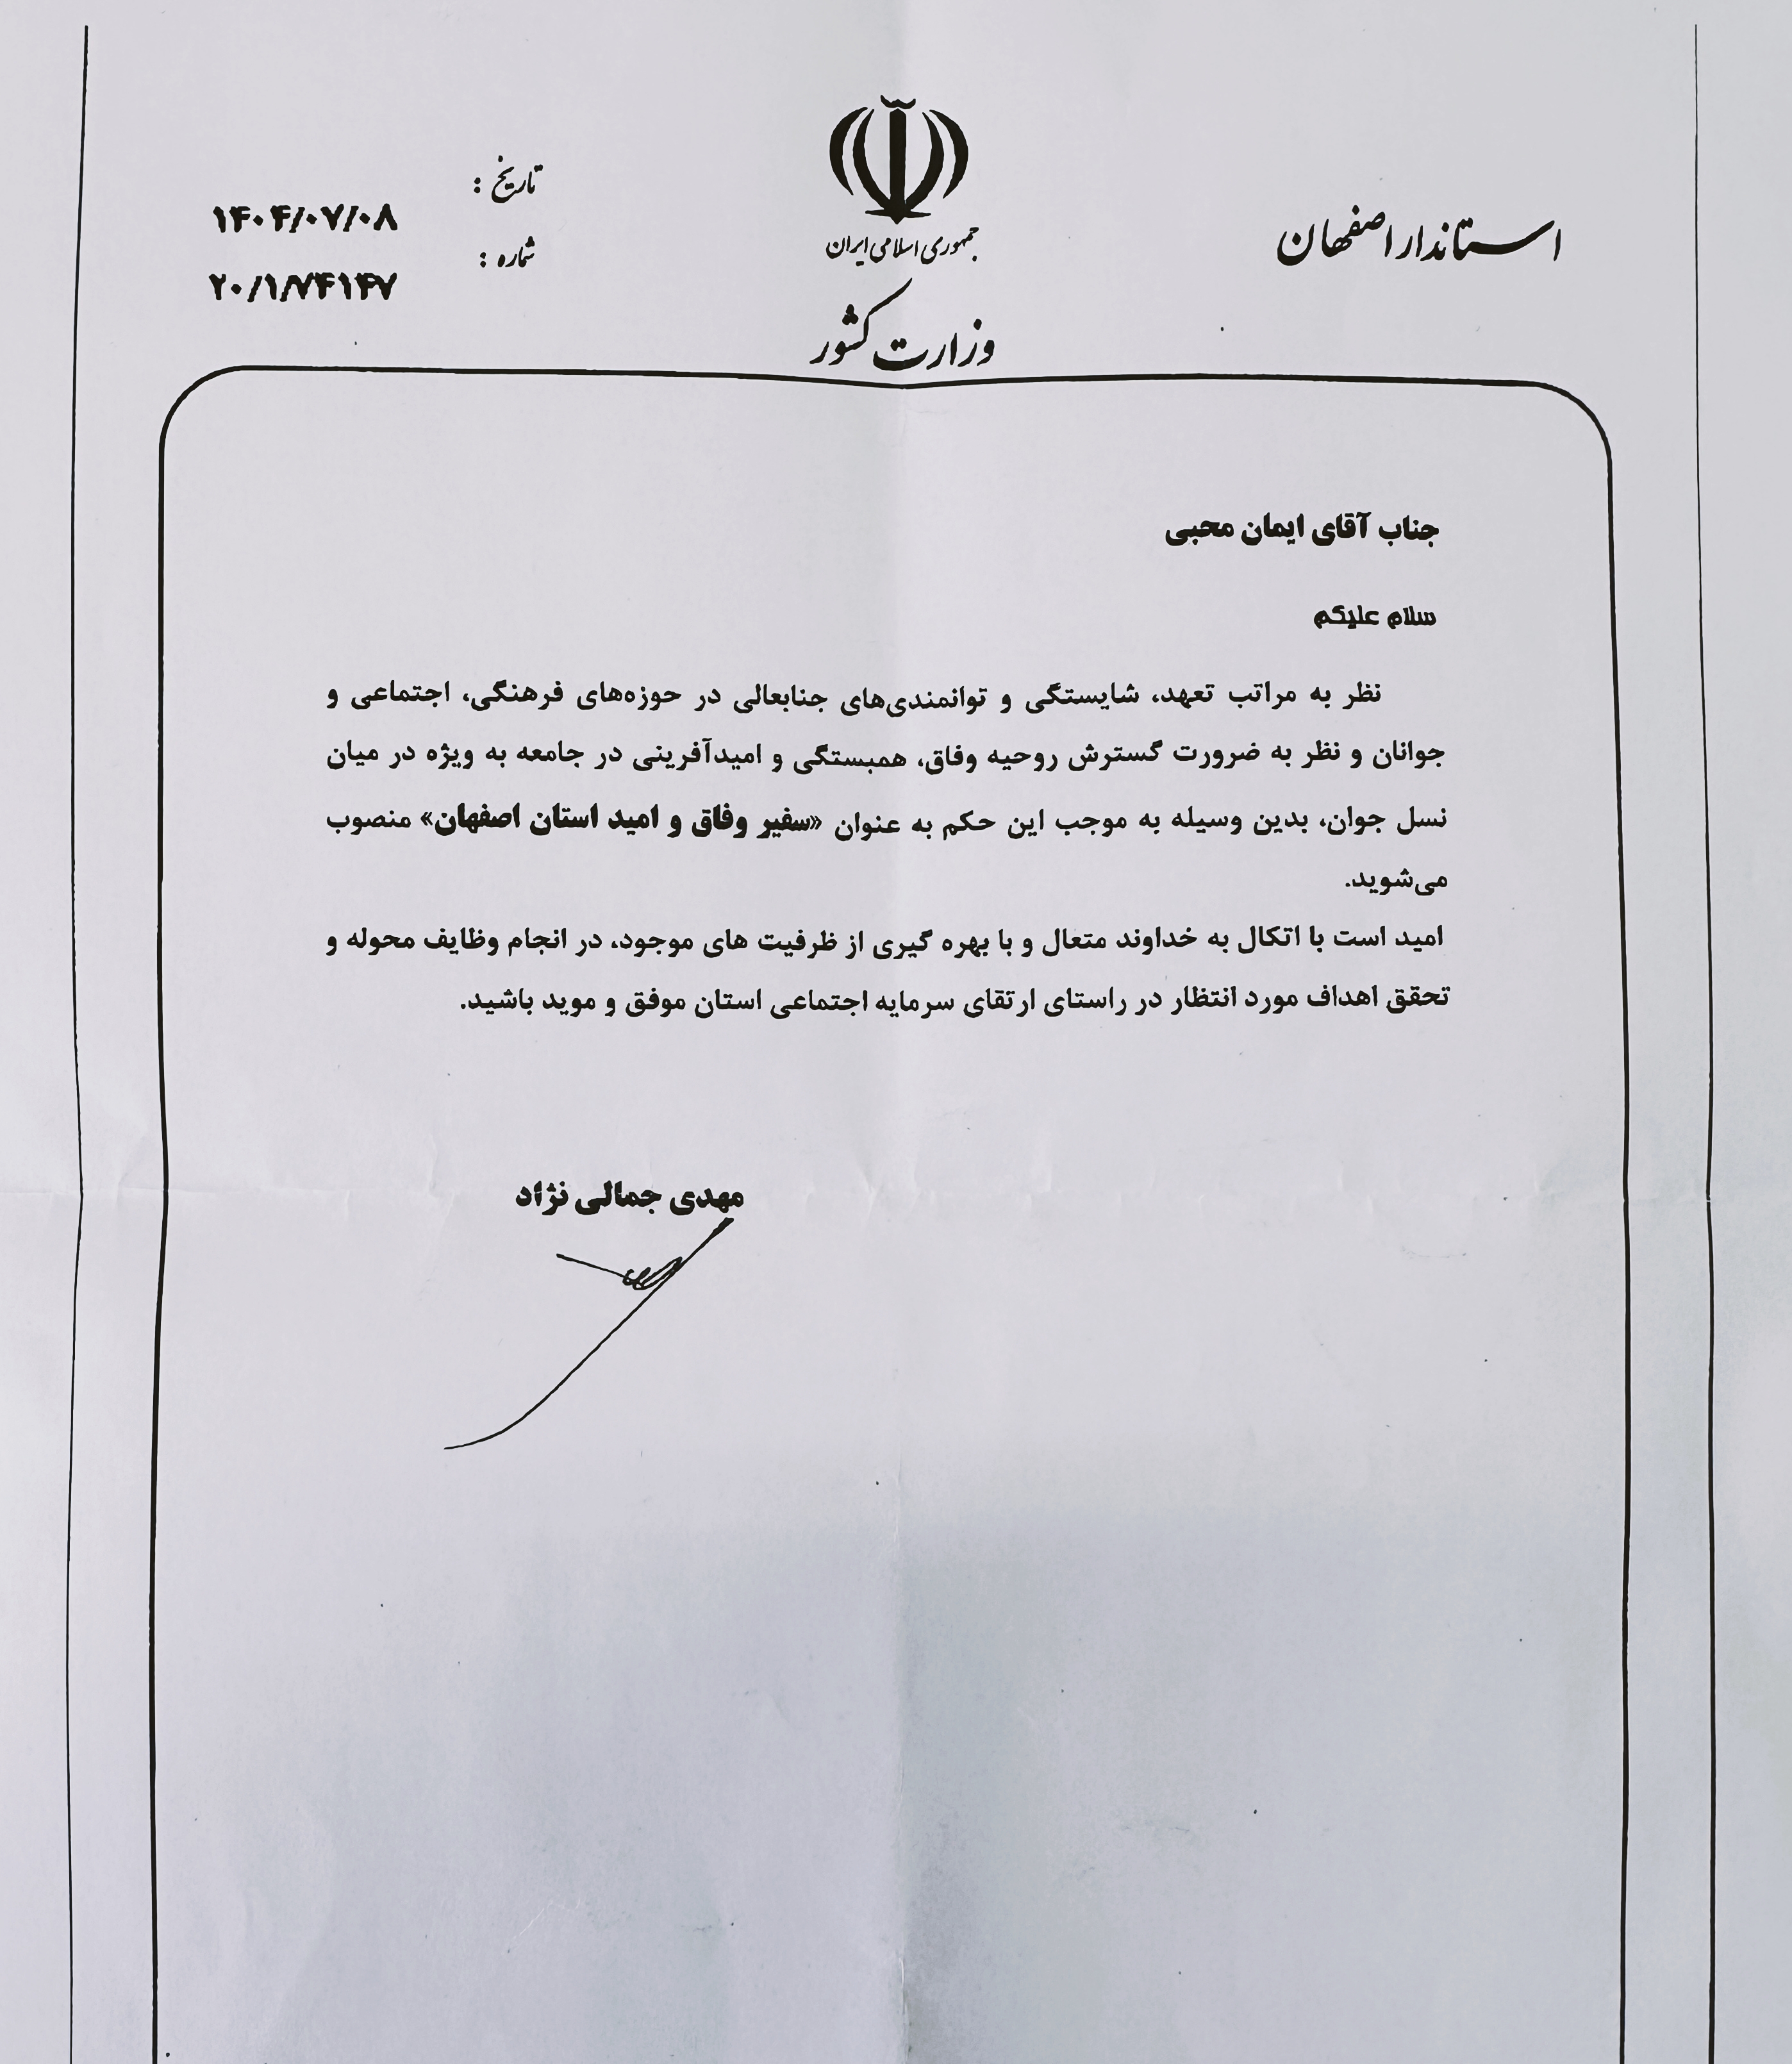 استاندار اصفهان
جمهوری اسلامی ایران
وزارت کشور
تاریخ :
۱۴۰۴/۰۷/۰۸
شماره :
۲۰/۱/۷۴۱۴۷
جناب آقای ایمان محبی
سلام علیکم
نظر به مراتب تعهد، شایستگی و توانمندی‌های جنابعالی در حوزه‌های فرهنگی، اجتماعی و
جوانان و نظر به ضرورت گسترش روحیه وفاق، همبستگی و امیدآفرینی در جامعه به ویژه در میان
نسل جوان، بدین وسیله به موجب این حکم به عنوان «سفیر وفاق و امید استان اصفهان» منصوب
می‌شوید.
امید است با اتکال به خداوند متعال و با بهره گیری از ظرفیت های موجود، در انجام وظایف محوله و
تحقق اهداف مورد انتظار در راستای ارتقای سرمایه اجتماعی استان موفق و موید باشید.
مهدی جمالی نژاد